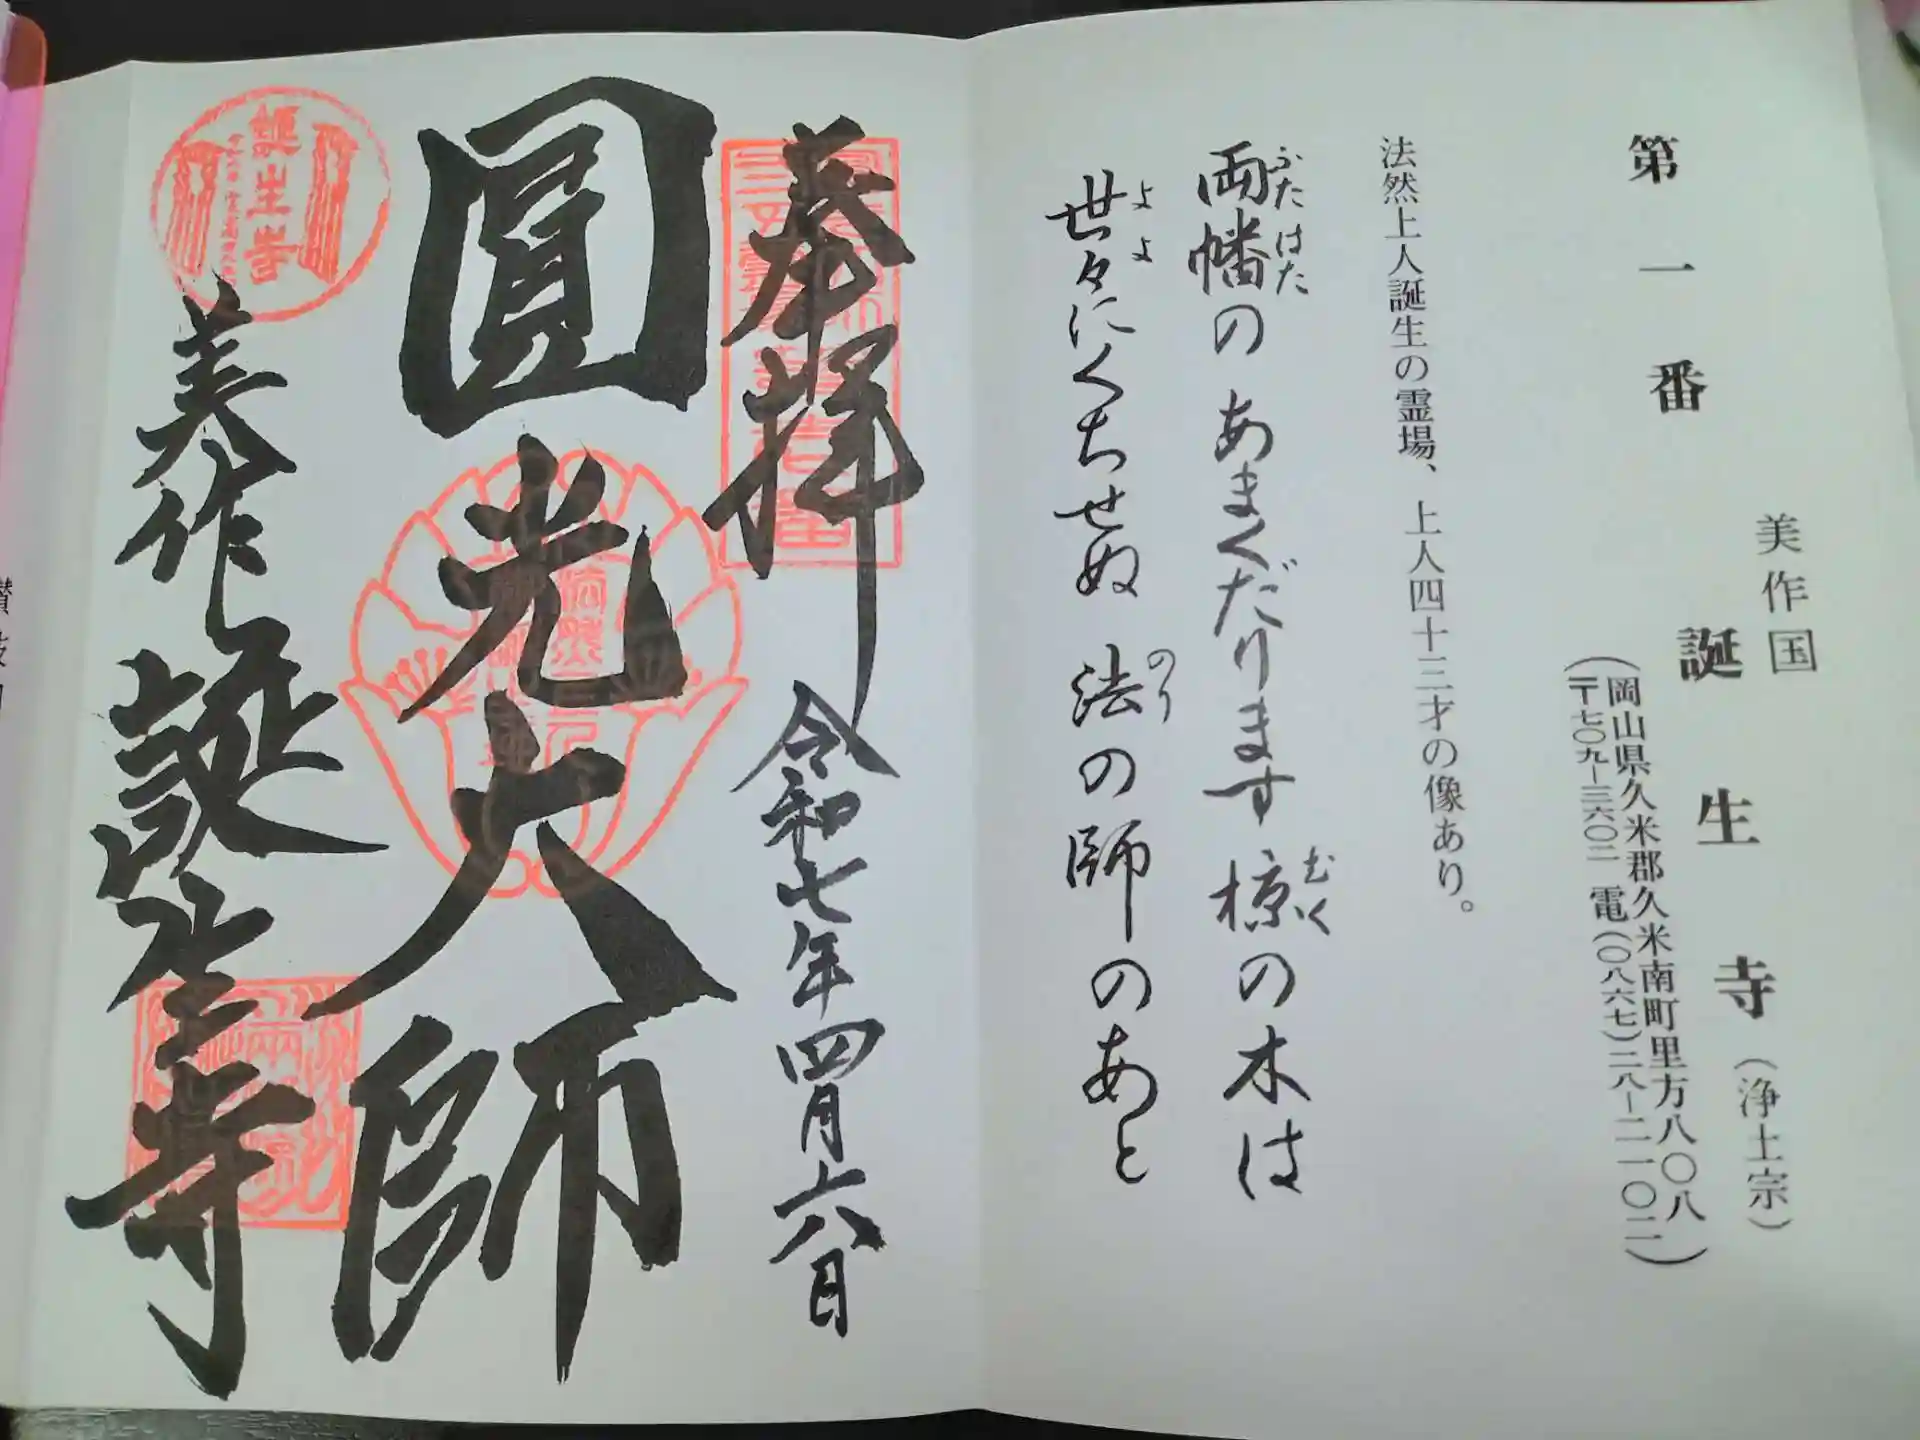 第一番
美作国
誕生寺(浄土宗)
(岡山県久米郡久米南町里方八〇八
〒七〇九ー三六〇二 電(〇八六七)二八ー二一〇二)
法然上人誕生の霊場、上人四十三才の像あり。
ふたはた
むく
両幡の あまくだります 椋の木は
よよ
のり
世々にくちせぬ 法の師のあと
奉拝
令和七年四月六日
圓光大師
誕生寺
美作 誕生寺